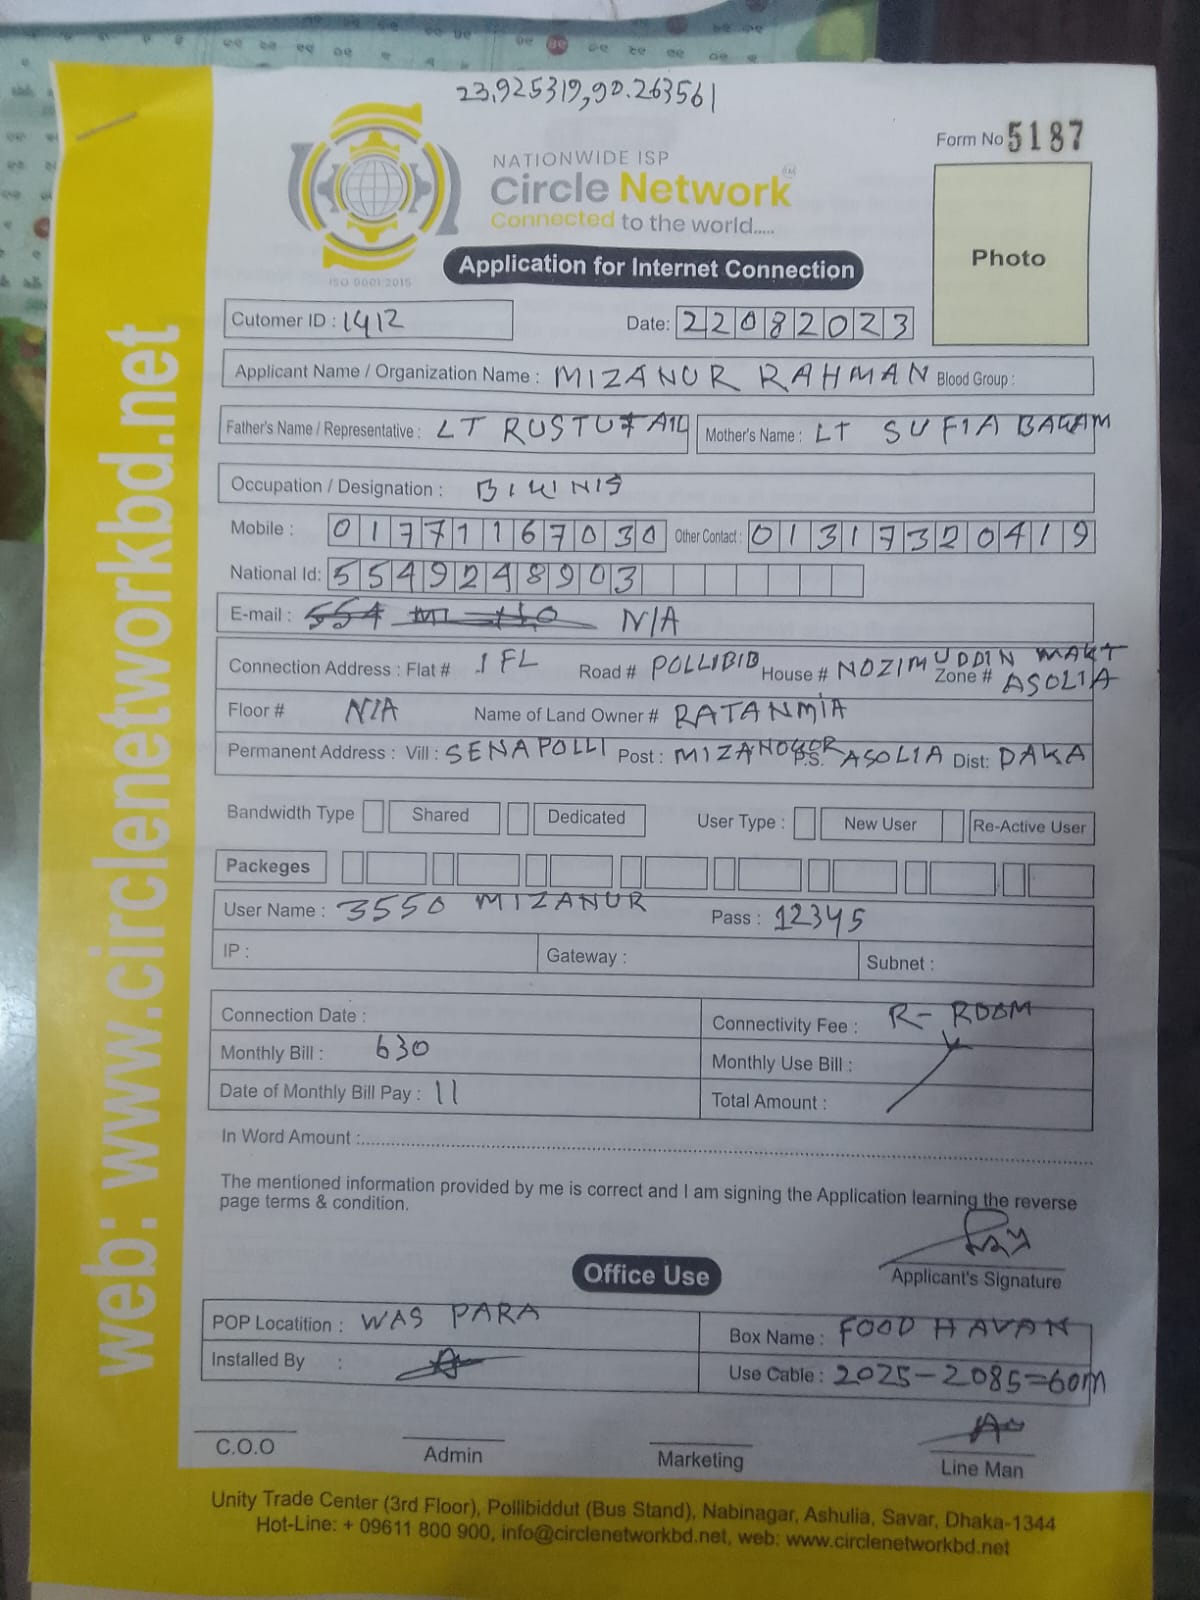 23.925319,90.263561
Form No 5187
NATIONWIDE ISP
Circle Network
SM
Connected to the world.....
ISO 9001:2015
Application for Internet Connection
Photo
Cutomer ID : 1412
Date: 22082023
Applicant Name / Organization Name : MIZANUR RAHMAN Blood Group :
Father's Name / Representative : LT Mother's Name : LT SUFIA BAGAM
Occupation / Designation :
Mobile : 01771167030 Other Contact : 01317320419
National Id: 5549248903
E-mail : N/A
Connection Address : Flat # 1 FL Road # POLLIBID House # NOZIMUDDIN MAKT Zone # ASOLIA
Floor # N/A Name of Land Owner # RATANMIA
Permanent Address : Vill : SENAPOLLI Post : MIZANOGOR P.S. ASOLIA Dist: DAKA
Bandwidth Type Shared Dedicated User Type : New User Re-Active User
Packeges
User Name : 3550 MIZANUR Pass : 12345
IP : Gateway : Subnet :
Connection Date : Connectivity Fee : R- ROOM
Monthly Bill : 630 Monthly Use Bill :
Date of Monthly Bill Pay : 11 Total Amount :
In Word Amount :
The mentioned information provided by me is correct and I am signing the Application learning the reverse
page terms & condition.
Applicant's Signature
Office Use
POP Locatition : WAS PARA Box Name : FOOD HAVAN
Installed By : Use Cable : 2025-2085=60m
C.O.O Admin Marketing Line Man
Unity Trade Center (3rd Floor), Pollibiddut (Bus Stand), Nabinagar, Ashulia, Savar, Dhaka-1344
Hot-Line: + 09611 800 900, info@circlenetworkbd.net, web: www.circlenetworkbd.net
web: www.circlenetworkbd.net